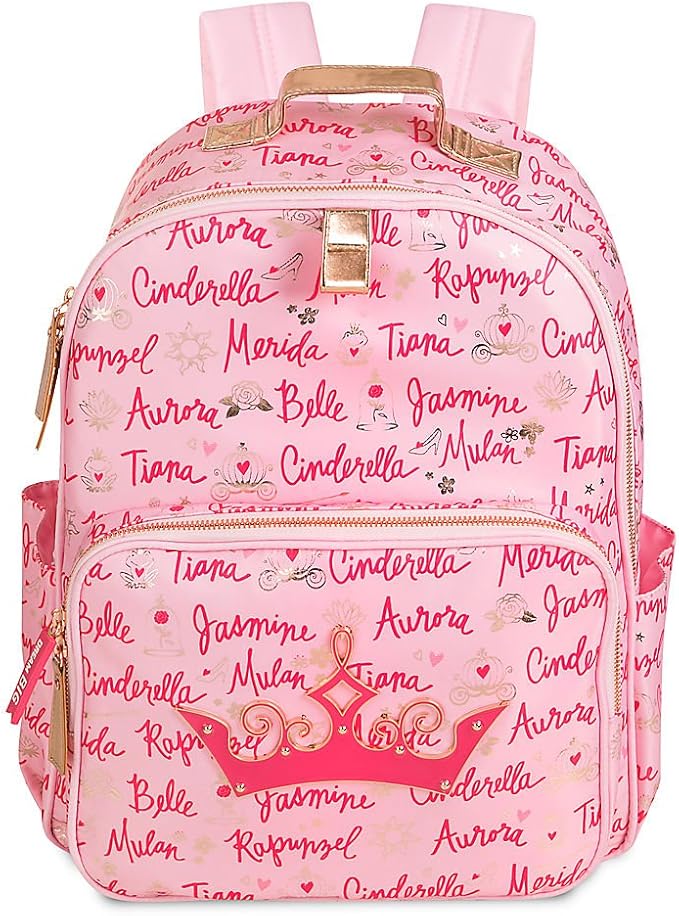 Aurora Belle
Tiana Cinderella
Aurora Belle Jasmine Mulan
Cinderella Mulan Rapunzel
Rapunzel Merida Tiana Cinderella
Aurora Belle Jasmine Aurora
Tiana Cinderella Mulan Tiana
Merida
Tiana Cinderella Merida
Belle Jasmine Aurora
Mulan Tiana Rapunzel
Cinderella Aurora
Merida Rapunzel Merida Tiana
Belle Jasmine Cinderella
Mulan Rapunzel Aurora Merida
Tiana Cinderella Mulan
DREAM BIG